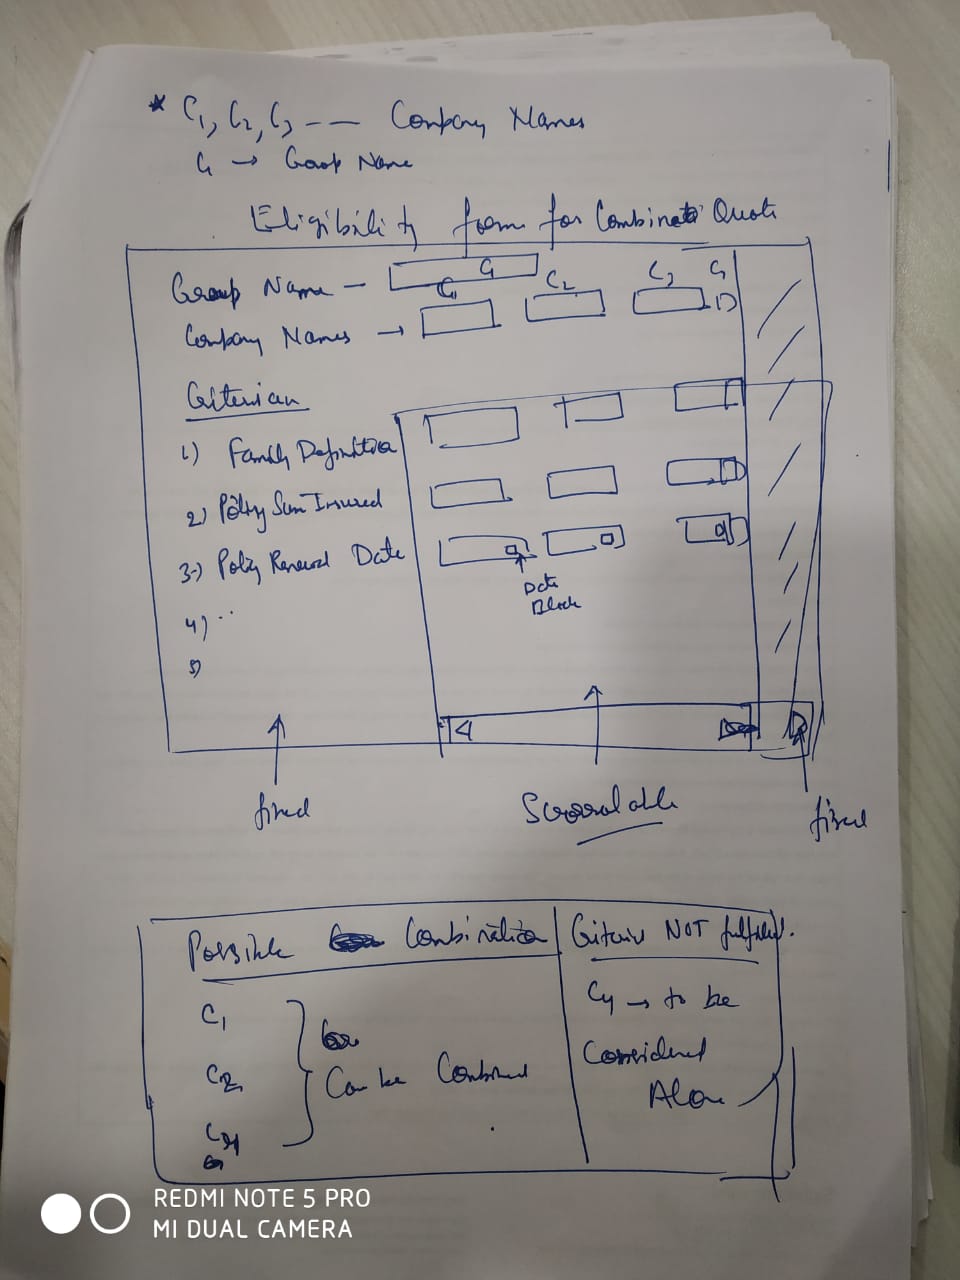 * C1, C2, C3 --- Company Names
G → Group Name
Eligibility form for Combined Quote
Group Name - G
C1 C2 C3 C4
Company Names →
Criterian
1) Family Definition
2) Policy Sum Insured
3-) Policy Renewal Date
Date
Block
4) ..
5)
fixed
Scrollable
fixed
Possible Combination
Criteria NOT fulfilled.
C1
C2
Can be Combined
C4 → to be
Considered
Alone
REDMI NOTE 5 PRO
MI DUAL CAMERA